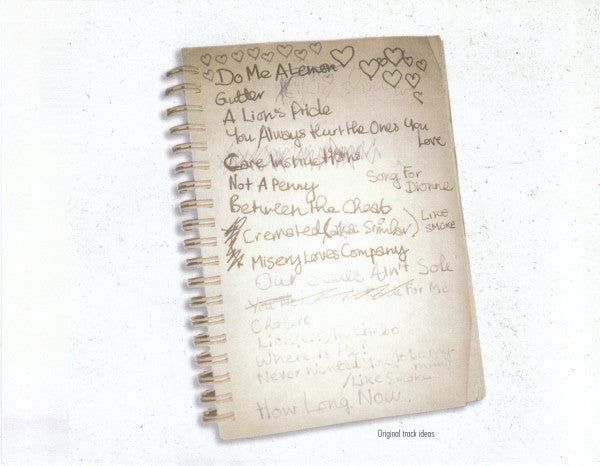 Do Me A Lemon
Gutter
A Lion's Pride
You Always Hurt the Ones You
Love
Care Instructions
Not A Penny
Song For
Dionne
Between The Cheats
Cremated
LIKE
SMOKE
Misery Loves Company
Our Ain't Sole
You For Me
Limbo
Where is
Never Wanted
Like Smoke
How Long Now.
Original track ideas